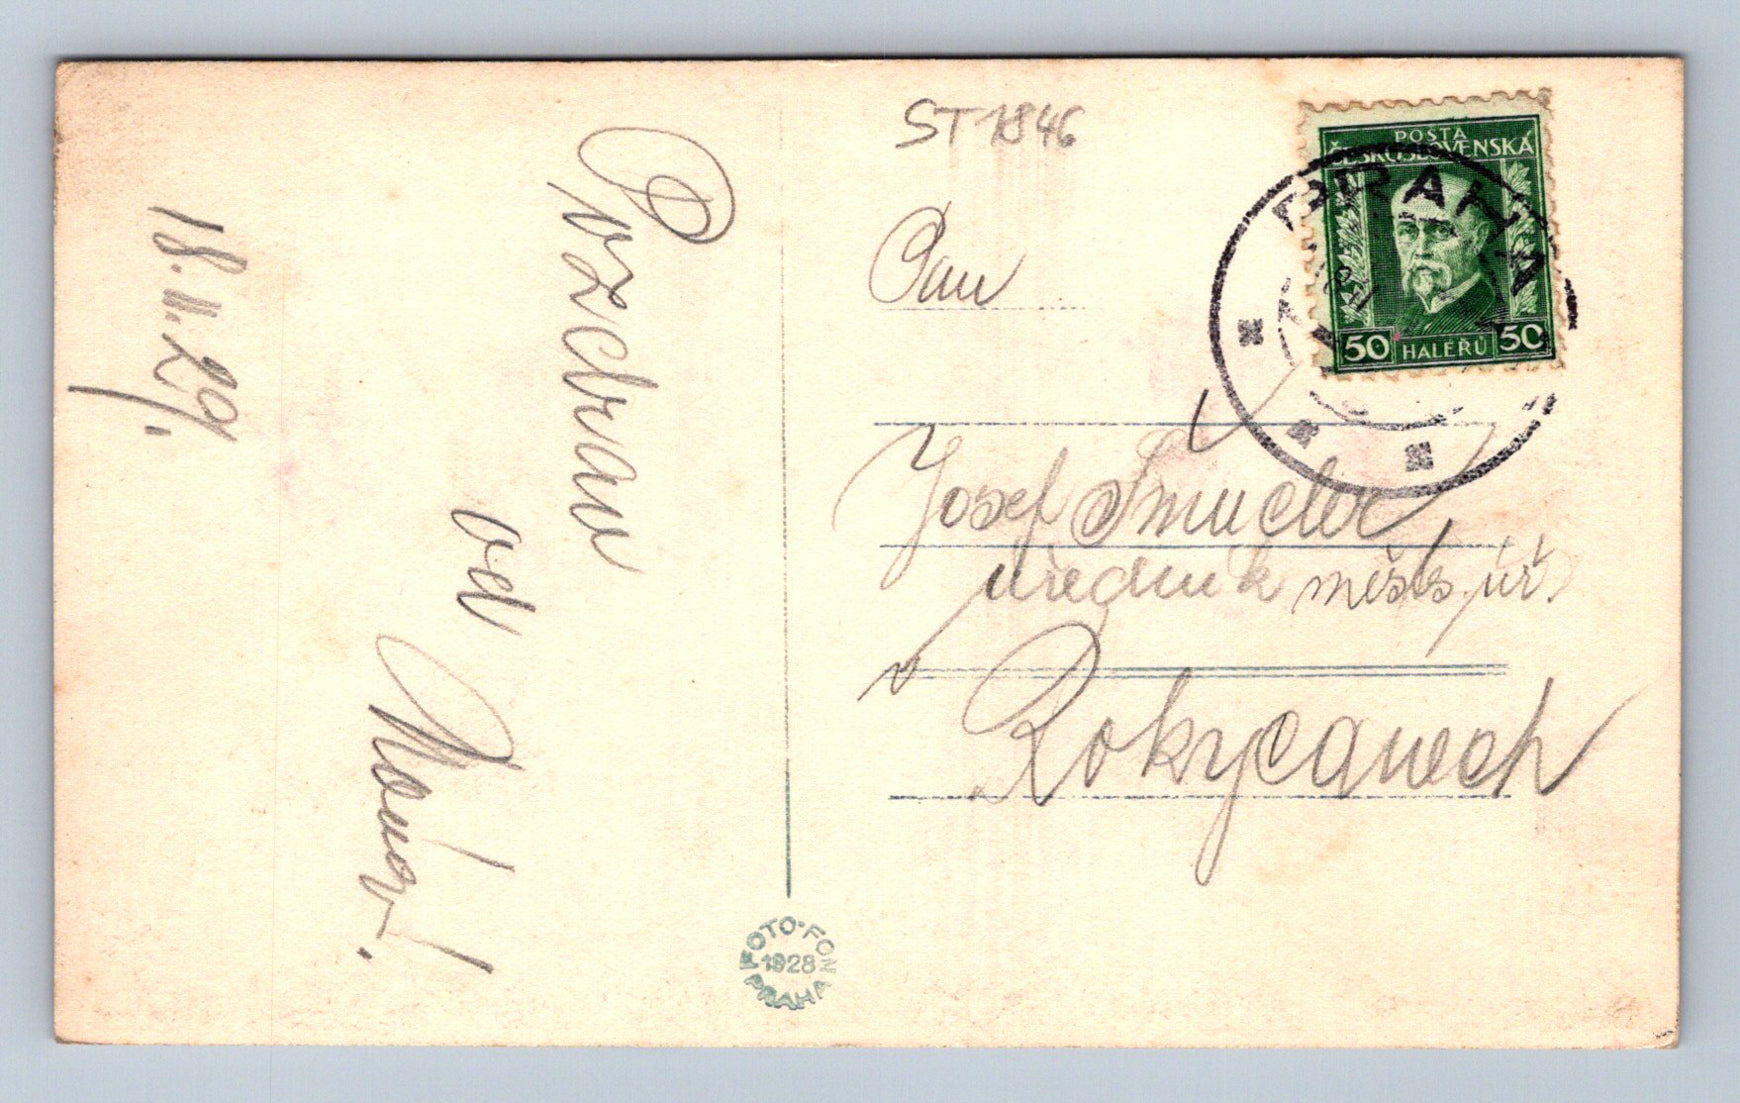 Pozdrav
od
18. II. 29.
ST 1846
Pan
Josef Šmucler
úředník měšť. úř.
v
Rokycanech
POŠTA
ČESKOSLOVENSKÁ
50 HALÉŘŮ 50
PRAHA
FOTO-FON
1928
PRAHA